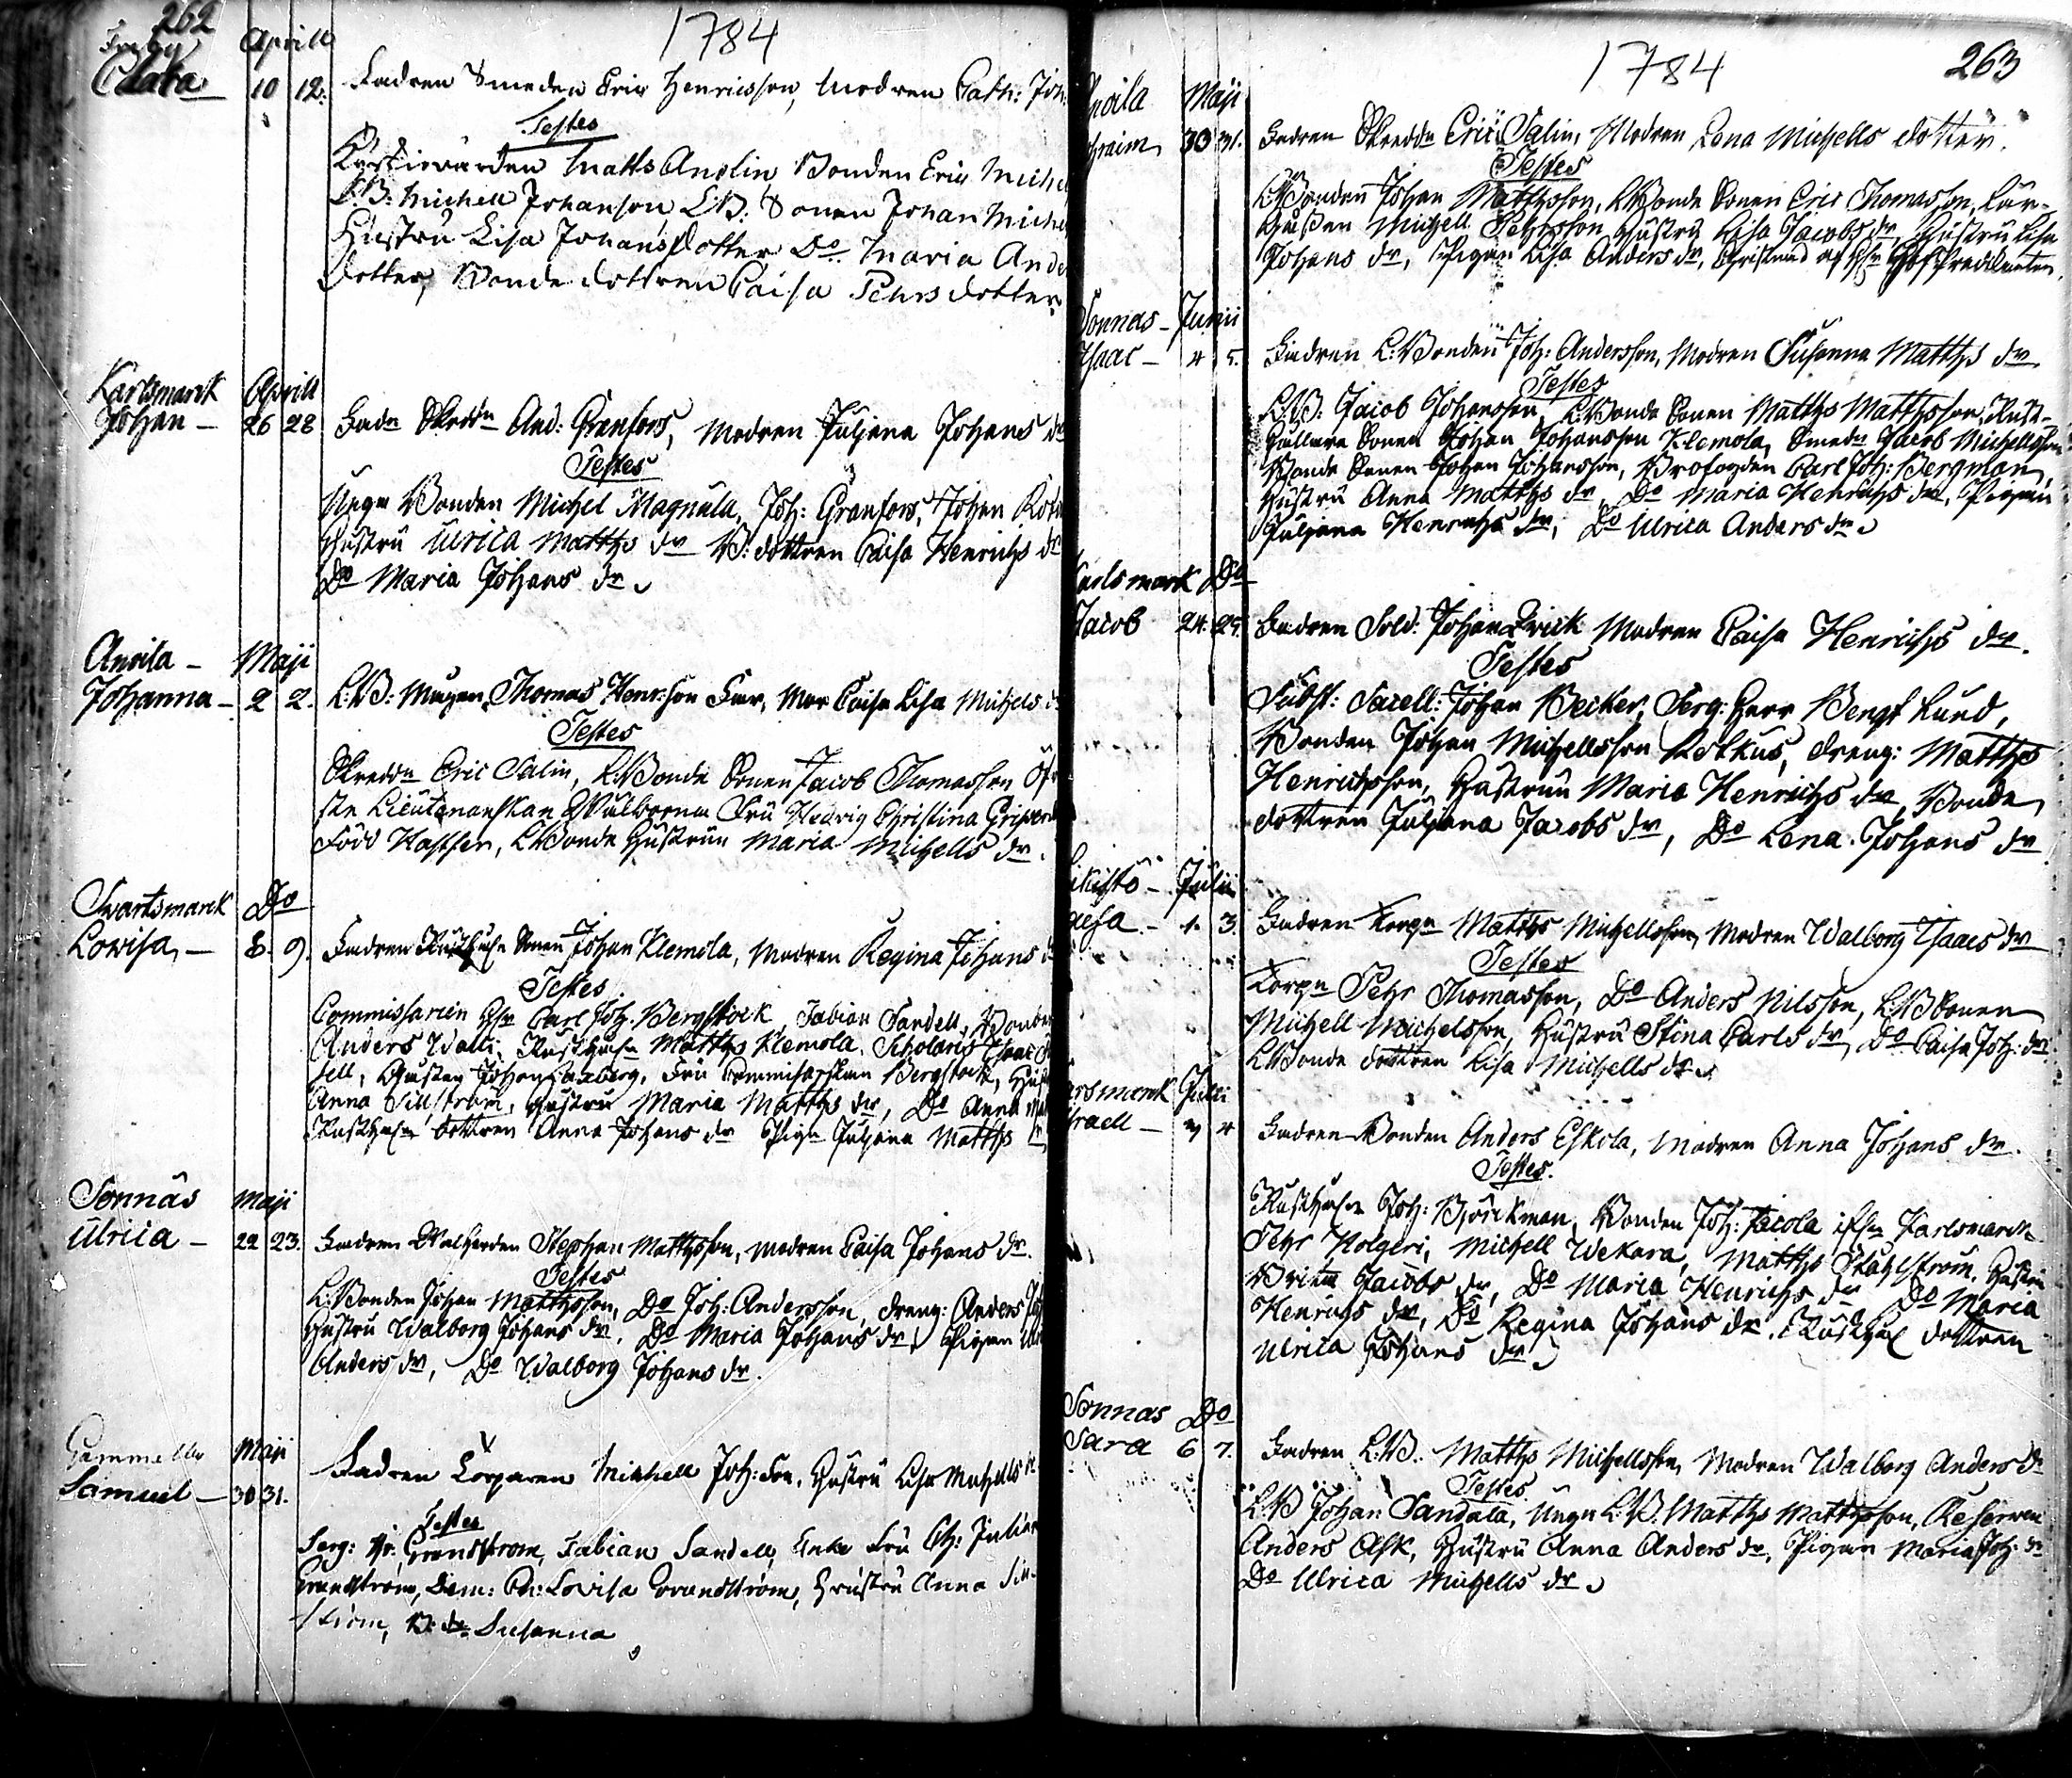 262
1784
Aprill
Clara 10 12. Fadren Smeden Eric Henricsson, Modren Cath: Joh:
Testes
Kyrkiovärden Matts Anolin Bonden Eric Michel
L:B: Michell Johanson L:B: Sonen Johan Michel
Hustru Lisa Johans Dotter Do Maria Ander
dotter, Bonde dottren Caisa Pehrs dotter
Karlsmarck Aprill
Johan - 26 28 Fadn Skreddn And: Granfors, Modren Juljana Johans dr
Testes
Unge Bonden Michel Magnula, Joh: Granfors, Johan
Hustru Ulrica Matths dr B: dottren Caisa Henrichs dr
Do Maria Johans dr
Anoila - Maji
Johanna - 2 2. L:B: Mågen Thomas Henr:son Far, Mor Caisa Lisa Michels dr
Testes
Skreddn Eric Salin, L:Bonde Sonen Jacob Thomasson Öfver
ste Lieutenanskan Wälborna Fru Hedvig Christina Gripen
Född Hastfer, LBonde Hustrun Maria Michells dr.
Svartsmarck Do
Lovisa, - 8. 9. Fadren Rusth: Sonen Johan Klemola, Modren Regina Johans dr
Testes
Commissarien Hr Carl Joh. Bergstock, Fabian Sandell, Bonden
Anders Walli, Rusth: Matths Klemola, Scholaris Isaac
dell, Gustav Johan Saxberg, Fru Commissarskan Bergstock, Hust
Anna Sillström, Hustru Maria Matths dr, Do Anna
Rusth: dottren Anna Johans dr Pign Juljana Matths dr
Sonnäs Maji
Ulrica - 22 23. Fadren Walherden Stephan Matthsson, Modren Caisa Johans dr.
Testes
L:Bonden Johan Matthsson, Do Joh: Andersson, dreng: Anders
Hustru Walborg Johans dr, Do Maria Johans dr, Pigan
Anders dr, Do Walborg Johans dr.
Gammelby Maji
Samuel - 30 31. Fadren Corparen Michell Joh: son, Hustru Lisa Michells dr
Testes
Serg: Hr: Grandstrom, Fabian Sandell, Enke Fru Ch: Julian
Grandström, Dem: Ch: Lovisa Grandström, Hustru Anna Sill-
ström, B: dr Susanna
1784 263
Anoila Maji
Ephraim 30 31. Fadren Skreddn Eric Salin, Modren Lena Michells dotter.
Testes
LBonden Johan Matthsson, LBonde Sonen Eric Thomasson, Lär-
Michell Pehrsson, Hustru Lisa Jacobs dr, Hustru Lisa
Johans dr, Pigan Lisa Anders dr, Christnad af Hr
Sonnas - Junii
Isaac - 4 5. Fadren L:Bonden Joh: Andersson, Modren Susanna Matths dr
Testes
L:B: Jacob Johansson, L:Bonde Sonen Matths Matthsson, Rust-
hållare Sonen Johan Johansson Klemola, Smedn Jacob Michellsson
Bonde Sonen Johan Johansson, Brofogden Carl Joh: Bergman,
Hustru Anna Matths dr, Do Maria Henrichs dr, Pigan
Juljana Henrichs dr, Do Ulrica Anders dr
Karlsmark Do
Jacob 24. 25. Fadren Sold: Johan Qvick Modren Caisa Henrichs dr.
Testes
Subst: Sacell: Johan Becker, Serg: Herr Bengt Lund,
Bonden Johan Michellsson Kokkus, dreng: Matths
Henrichsson, Hustrun Maria Henrichs dr, Bonde
dottren Juljana Jacobs dr, Do Lena Johans dr
Julii
1. 3. Fadren Korpn Matths Michellsson, Modren Walborg Isaacs dr
Testes
Korpn Pehr Thomasson, Do Anders Nilsson, L:B Sonen
Michell Michelsson, Hustru Stina Carls dr, Do Caisa Joh: dr
LBonde dottren Lisa Michells dr
Karsmarck Julii
Israell - Fadren Bonden Anders Eskola, Modren Anna Johans dr.
Testes.
Rusth: Joh: Björckman, Bonden Joh: Jacola ifrån Karlsmarck
Pehr Holgeri, Michell Wekara, Matths Stahlstrom, Hustru
Britta Jacobs dr, Do Maria Henrichs dr Do Maria
Henrichs dr, Do Regina Johans dr. Rusth: dottren
Ulrica Johans dr
Sonnas Do
Sara 6 7. Fadren L:B: Matths Michellsson, Modren Walborg Anders dr
Testes
L:B Johan Sandala, Unge L:B: Matths Matthsson, Reserven
Anders Ask, Hustru Anna Anders dr, Pigan Maria Joh: dr
Do Ulrica Michells dr